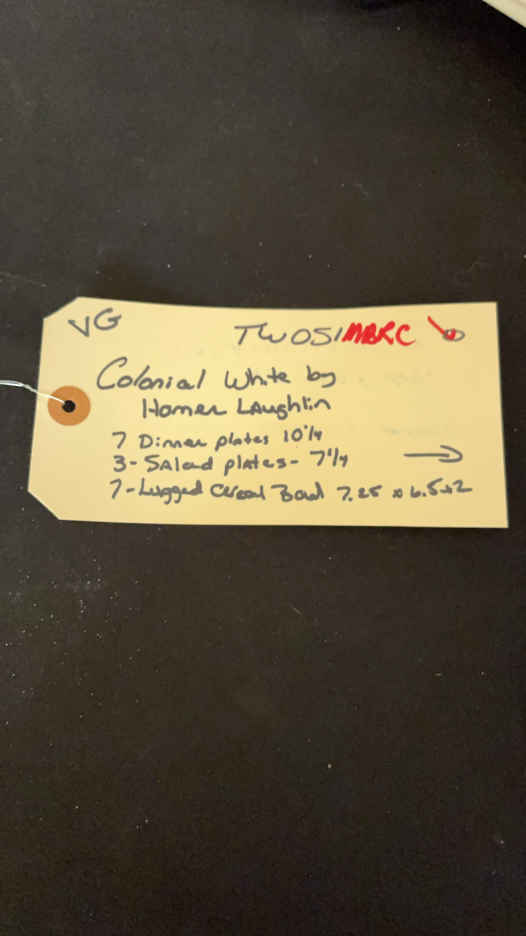 VG TWOS1MBRC
Colonial White by
Homer Laughlin
7 Dinner plates 10 1/4
3-Salad plates- 7 1/4 →
7-Lugged Cereal Bowl 7.25 x 6.5x2